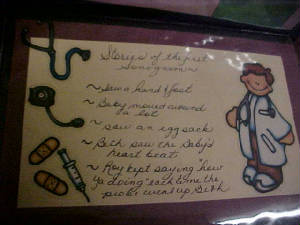 Stories of the first
Sonogram
~ Saw a hand & foot
~ Baby moved around
a lot
~ saw an egg sack
~ Beth saw the baby's
heart beat
~ Roy kept saying "how
ya doing" each time the
probe went up Beth